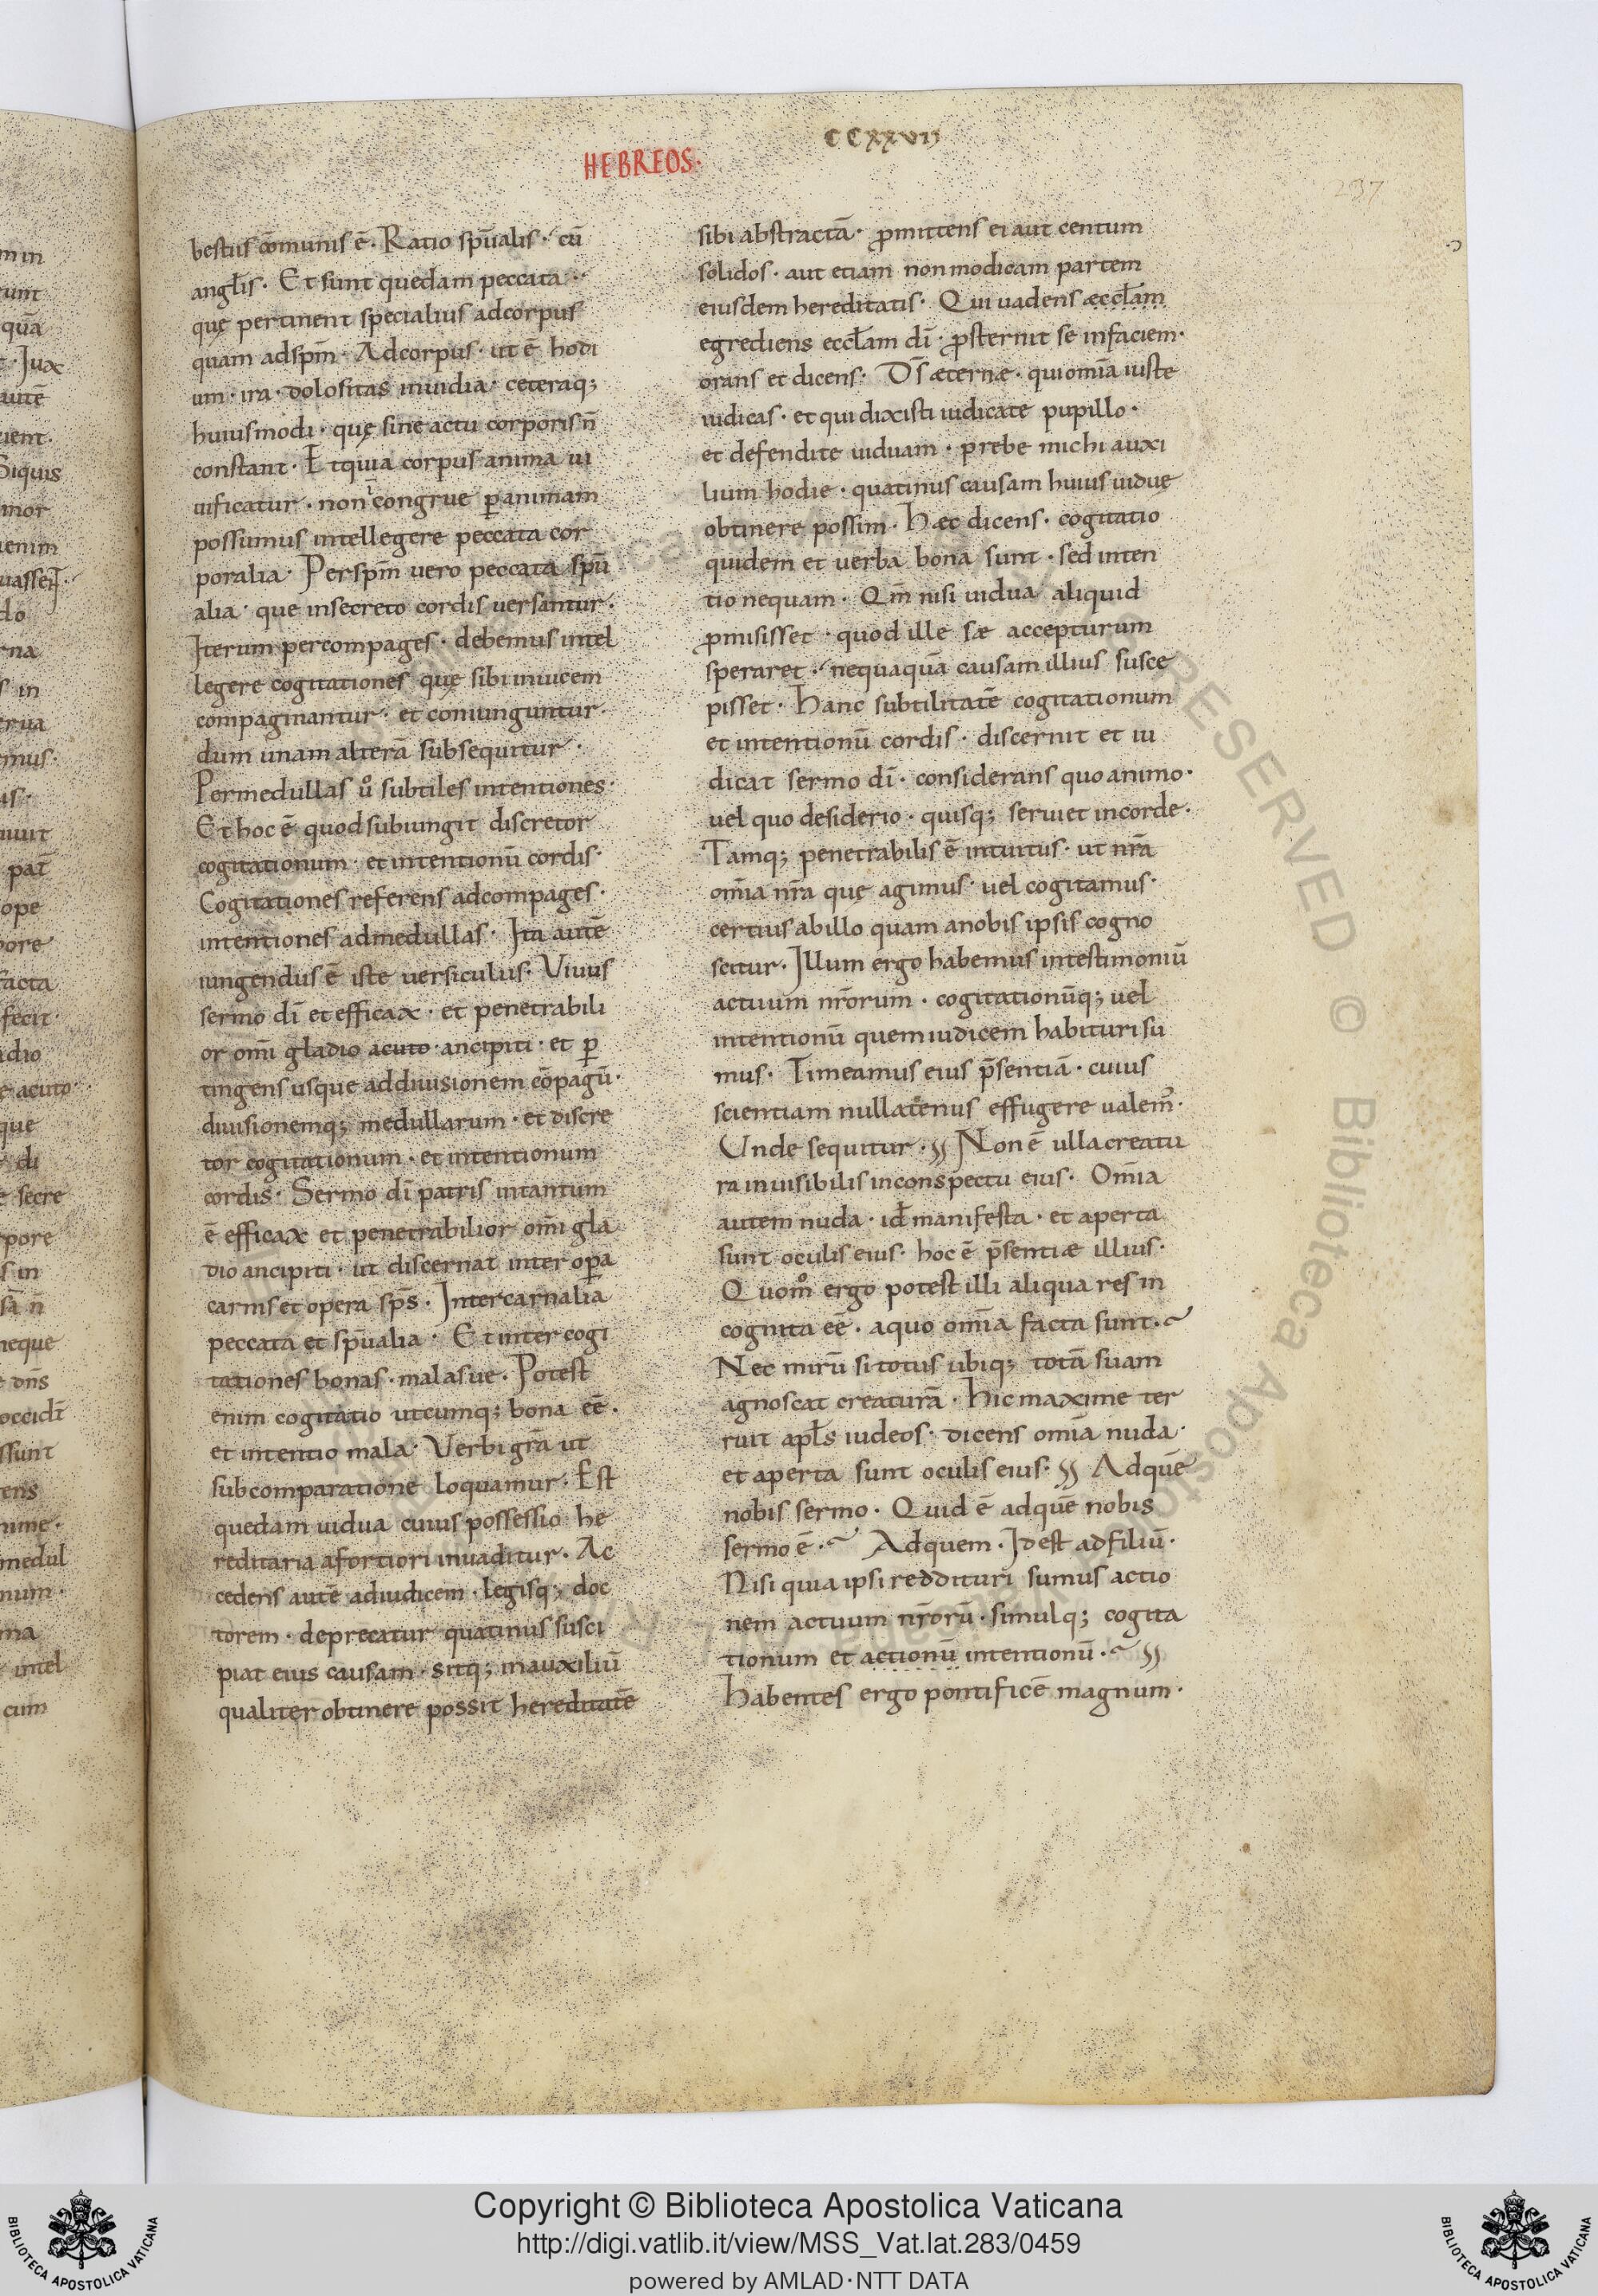 CCXXVII
HEBREOS·
237
bestiis cōmunis ē· Ratio sp̄ualis· cū
angl̄is· Et sunt quedam peccata·
quę pertinent specialius adcorpus
quam adsp̄m· Adcorpus· ut ē hodi
um· ira· dolositas inuidia· ceteraq;
huiusmodi· quę sine actu corporis n̄
constant· Et quia corpus anima ui
uificatur· non icongrue p̱ animam
possumus intellegere peccata cor
poralia· Per sp̄m vero peccata sp̄u
alia· que insecreto cordis versantur·
Iterum percompages· debemus intel
legere cogitationes quę sibi inuicem
compaginantur· et coniunguntur·
dum unam alterā subsequitur·
Permedullas uͦ subtiles intentiones·
Et hoc ē quod subiungit discretor
cogitationum· et intentionū cordis·
Cogitationes referens adcompages·
intentiones admedullas· Ita autē
iungendus ē iste versiculus· Viuus
sermo dī et efficax· et penetrabili
or om̄i gladio acuto ancipiti· et p̱
tingens usque addiuisionem cōpagū·
diuisionemq; medullarum· et discre
tor cogitationum· et intentionum
cordis· Sermo dī patris intantum
ē efficax et penetrabilior om̄i gla
dio ancipiti· ut discernat inter op̱a
carnis et opera sp̄s· Inter carnalia
peccata et sp̄ualia· Et inter cogi
tationes bonas· malasue· Potest
enim cogitatio utcumq; bona eē·
et intentio mala· Verbi gr̄a ut
subcomparatione loquamur· Est
quedam uidua cuius possessio he
reditaria afortiori inuaditur· Ac
cedens autē adiudicem· legisq; doc
torem· deprecatur quatinus susci
piat eius causam· sitq; inauxiliū
qualiter obtinere possit hereditatē
sibi abstractā· p̱mittens ei aut centum
solidos· aut etiam non modicam partem
eiusdem hereditatis· Qui uadens æccl̄am
egrediens eccl̄am dī· p̱sternit se infaciem·
orans et dicens· Ds̄ æternæ· qui om̄ia iuste
iudicas· et qui dixisti iudicate pupillo·
et defendite uiduam· prebe michi auxi
lium hodie· quatinus causam huius uiduę
obtinere possim· Hæc dicens· cogitatio
quidem et uerba bona sunt· sed inten
tio nequam· Qm̄ nisi uidua aliquid
p̱misisset· quod ille sæ accepturum
speraret· nequaquā causam illius susce
pisset· Hanc subtilitatē cogitationum
et intentionū cordis· discernit et iu
dicat sermo dī· considerans quo animo·
uel quo desiderio· quisq; seruiet incorde·
Tamq; penetrabilis ē intuitus· ut nr̄a
om̄ia nr̄a quę agimus· uel cogitamus·
certius abillo quam anobis ipsis cogno
scitur· Illum ergo habemus intestimoniū
actuum nr̄orum· cogitationūq; uel
intentionū quem iudicem habituri su
mus· Timeamus eius p̄sentiā· cuius
scientiam nullatenus effugere ualem᷒·
Unde sequitur· Non ē ulla creatu
ra inuisibilis inconspectu eius· Om̄ia
autem nuda· id̄ manifesta· et aperta
sunt oculis eius· hoc ē p̄sentiæ illius·
Quomͦ ergo potest illi aliqua res in
cognita eē· aquo om̄ia facta sunt·
Nec mirū si totus ubiq; totā suam
agnoscat creaturā· Hic maxime ter
ruit apl̄s iudeos· dicens om̄ia nuda·
et aperta sunt oculis eius· Adquē
nobis sermo· Quid ē adquē nobis
sermo ē· Adquem· Idest adfiliū·
Nisi quia ipsi reddituri sumus actio
nem actuum nr̄orū· simulq; cogita
tionum et actionū intentionū·
Habentes ergo pontificē magnum·
Copyright © Biblioteca Apostolica Vaticana
http://digi.vatlib.it/view/MSS_Vat.lat.283/0459
powered by AMLAD·NTT DATA